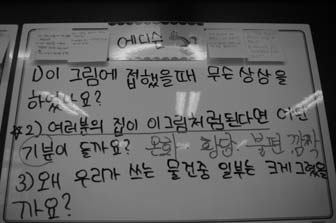 에디슨
1) 이 그림에 접했을때 무슨 상상을
하였나요?
2) 여러분의 집이 이그림처럼된다면 어떤
기분이 들까요? 온화 황당 불편 깜짝
3) 왜 우리가 쓰는 물건중 일부는 크게 그렸을
까요?